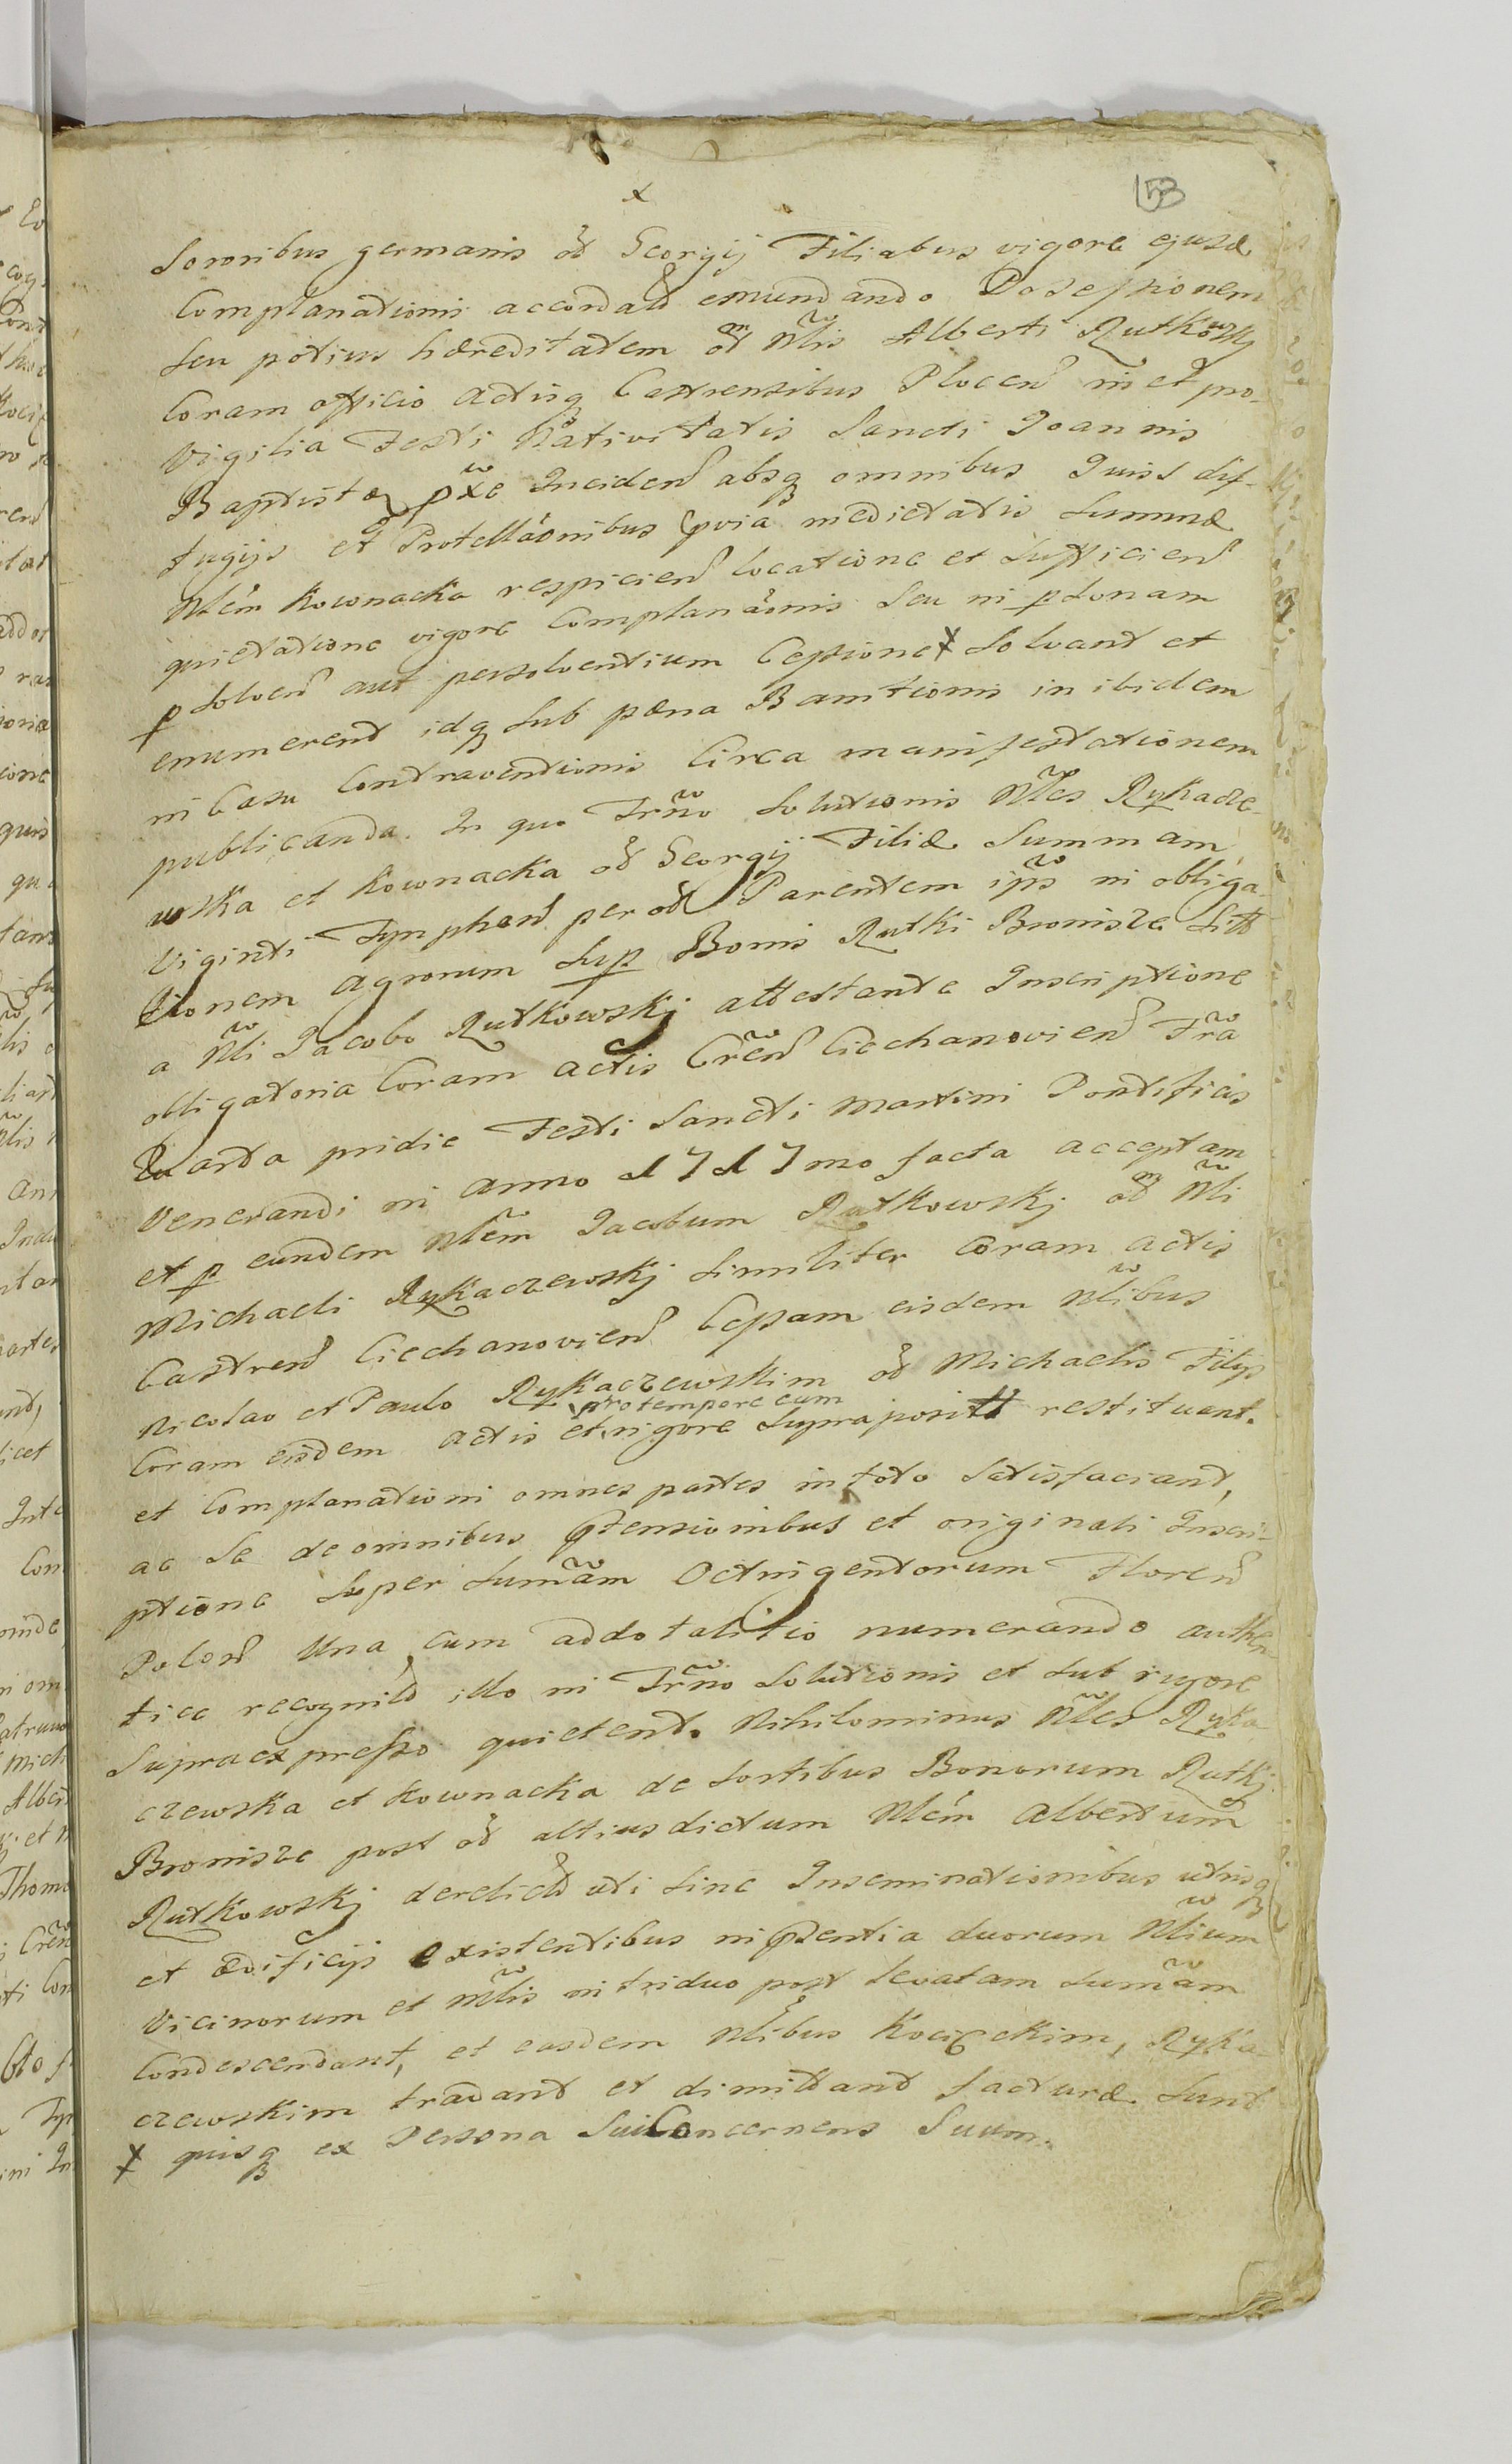 x
153
Sororibus germanis oð Georgij Filiabus vigore ejusd
Complanationis accordatt emundando Possessionem
seu potius hæreditatem oð Nlis Alberti Rutkowskj
Coram officio Actisq Castrensibus Plocen in et pro
Vigilia Festi Nativitatis Sancti Joannis
Baptistæ pxe Inciden absq omnibus Juris dif-
fugijs et Protellaonibus pvia medietatis Summæ
Nlem Kownacka respicien locatione et sufficien
quietatione vigore Complanaonis seu in psonam
psolven aut persolventium Cessione x solvant et
enumerent idq sub pæna Bannitionis in ibidem
in Casu Contraventionis Circa manifestationem
publicanda. In quo Trno solutionis Nles Rykacze-
wska et Kownacka oð Georgij Filiæ Summam
Viginti Tynphon per oð Parentem ips in obliga-
tionem agrorum sup Bonis Rutki Bronisze sitt
a Nli Jacobo Rutkowskj attestante Inscriptione
obligatoria Coram actis Cren Ciechanovien Fra
Quarta pridie Festi Sancti Martini Pontificis
Venerandi in anno 1717mo facta acceptam
et p eundem Nlem Jacobum Rutkowskj oð Nli
Michaeli Rykaczewskj similiter Coram actis
Castren Ciechanovien Cessam eisdem Nlibus
Nicolao et Paulo Rykaczewskim oð Michaelis Filijs
pro tempore cum
Coram eisdem actis et rigore supra positt restituent.
et Complanationi omnes partes in toto satisfaciant,
ac se de omnibus ptensionibus et originali Inscri-
ptione super sumam Octingentorum Floren
Polon Una cum addotalitio numerando authen-
tice recognitt illo in Trno solutionis et sub rigore
supraexpresso quietent. Nihilominus Nles Ryka
czewska et Kownacka de sortibus Bonorum Rutkj
Bronisze post oð altius dictum Nlem Albertum
Rutkowskj derelictt uti sine Inseminationibus utrisq
et ædificijs existentibus in psentia duorum Nlium
Vicinorum et Mlis in triduo post levatam sumam
Condescendant, et easdem Nlibus Kocięckim, Ryka-
czewskim tradant et dimittant facturæ sunt
x quisq ex Persona sui Concernens Suum.